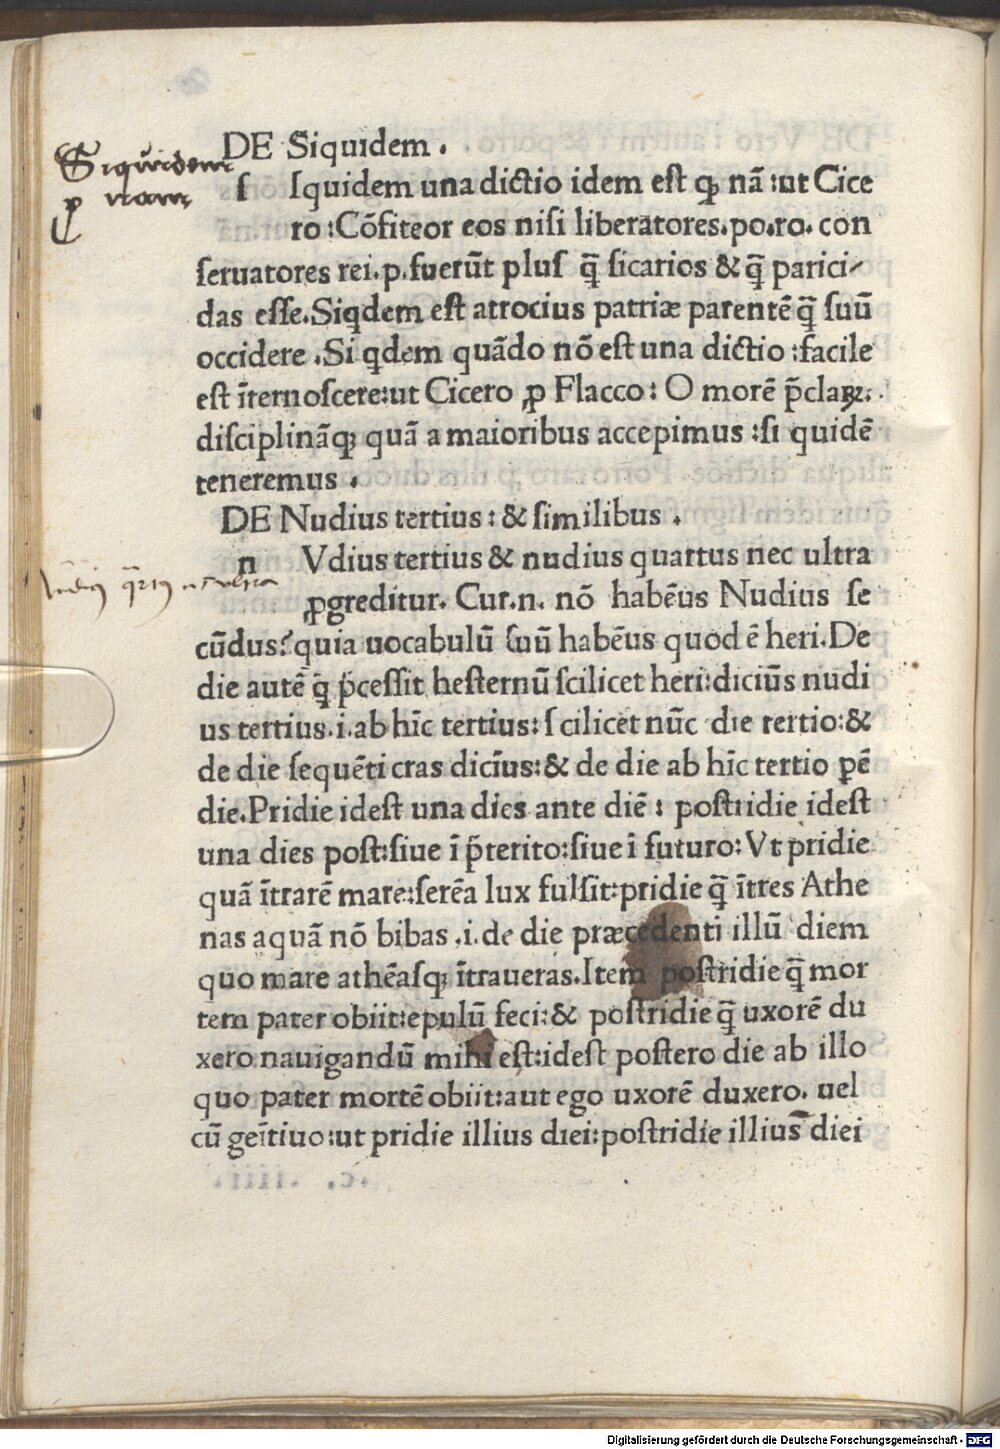 DE Siquidem .
Siquidem
nam
ſ ſquidem una dictio idem eſt qꝫ nã :ut Cice
ro :Cõfiteor eos niſi liberatores.po.ro. con
ſeruatores rei.p.fuerũt pluſ q̃ ſicarios & q̃ parici⸗
das eſſe.Siqdem eſt atrocius patriæ parentẽ q̃ ſuũ
occidere .Si qdem quãdo nõ eſt una dictio :facile
eſt ĩternoſcere:ut Cicero ꝓ Flacco : O morẽ p̃claꝝ:
diſciplinãqꝫ quã a maioribus accepimus :ſi quidẽ
teneremus .
DE Nudius tertius : & ſimilibus .
n Vdius tertius & nudius quartus nec ultra
ꝓgreditur. Cur.n. nõ habẽus Nudius ſe
cũdus? quia uocabulũ ſuũ habẽus quod ẽ heri.De
die autẽ q̃ p̃ceſſit heſternũ ſcilicet heri:diciũs nudi
us tertius.i.ab hĩc tertius: ſcilicet nũc die tertio:&
de die ſequẽti cras dicĩus:& de die ab hĩc tertio pẽ
die.Pridie ideſt una dies ante diẽ : poſtridie ideſt
una dies poſt:ſiue ĩ p̃terito:ſiue ĩ futuro: Vt pridie
quã ĩtrarẽ mare:ſerẽa lux fulſit:pridie q̃ ĩtres Athe
nas aquã nõ bibas .i.de die præcedenti illũ diem
quo mare athẽaſqꝫ ĩtraueras.Item poſtridie q̃ mor
tem pater obiit:epulũ feci:& poſtridie q̃ uxorẽ du
xero nauigandũ mihi eſt:ideſt poſtero die ab illo
quo pater mortẽ obiit:aut ego uxorẽ duxero. uel
cũ geĩtiuo:ut pridie illius diei:poſtridie illius diei
Digitalisierung gefördert durch die Deutsche Forschungsgemeinschaft - DFG